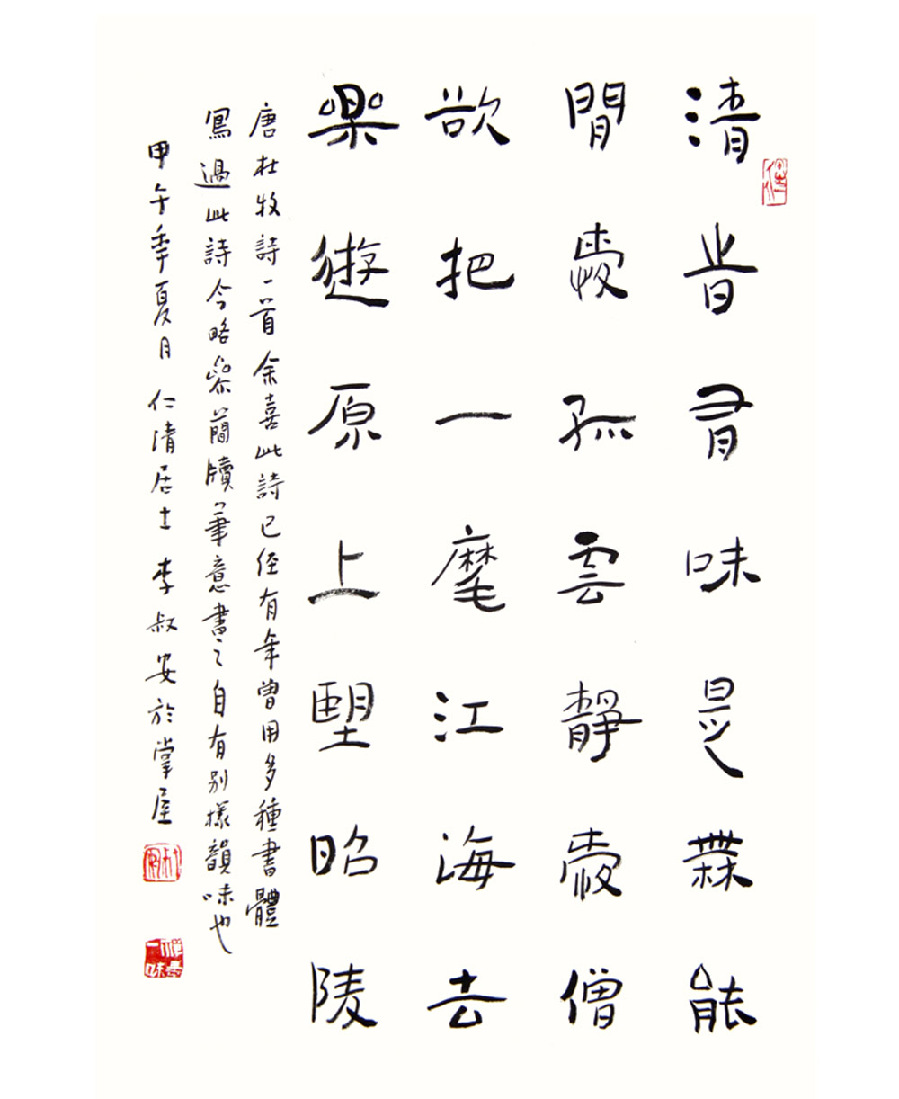 清昔有味是無能
閒愛孤雲靜愛僧
欲把一麾江海去
樂遊原上望昭陵
唐杜牧詩一首余喜此詩已经有年曾用多種書體
寫過此詩今略參簡牘筆意書之自有别樣韻味也
甲午年夏月仁清居士李叔安於掌屋